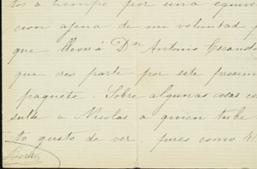 tos a tiempo por una equivo
cion agena de mi voluntad
que llevará Dn Antonio
que des parte por este
paquete. Sobre algunas cosas
sulta a Nicolas a quien tube
to gusto de ver. pues como